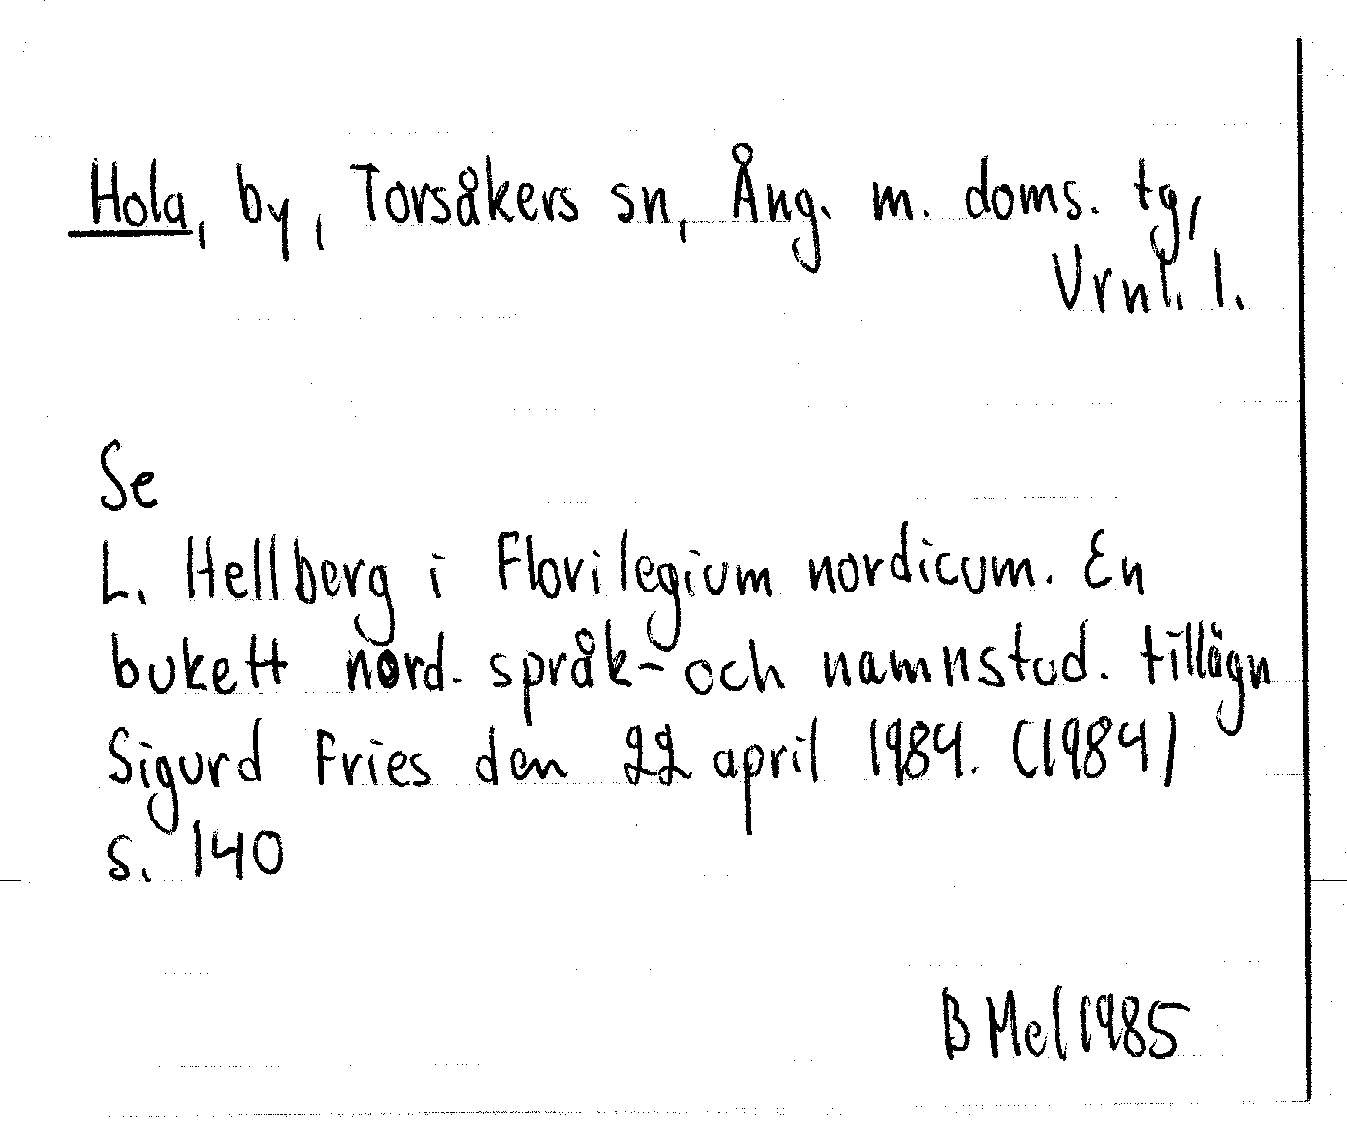 Hola, by, Torsåkers sn, Ång. m. doms. tg,
Vrnl. l.
Se
L. Hellberg i Florilegium nordicum. En
bukett nord. språk- och namnstud. tillägn
Sigurd Fries den 22 april 1984. (1984)
s. 140
B Mel 1985